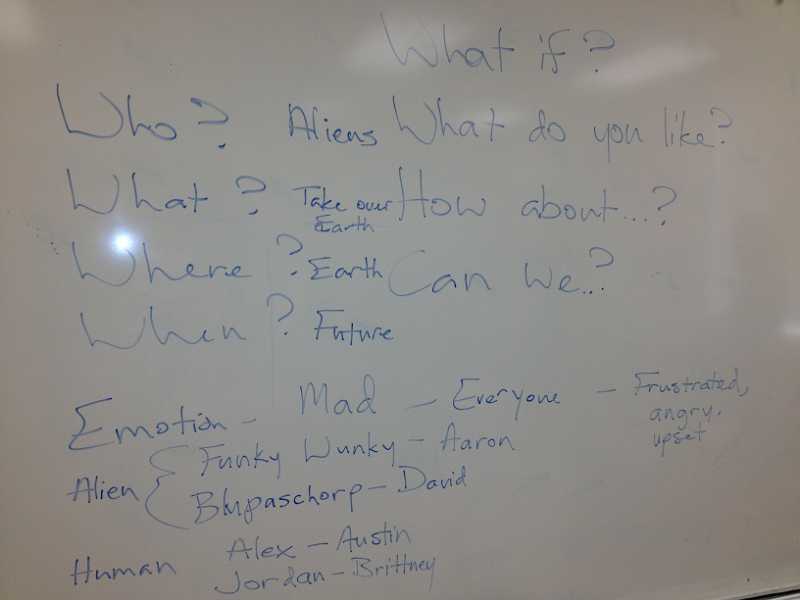 What if?
Who? Aliens What do you like?
What? Take over How about...?
Earth
Where? Earth Can we...?
When? Future
Emotion - Mad - Everyone - Frustrated,
angry,
upset
Alien { Funky Wunky - Aaron
Blupaschorp - David
Human Alex - Austin
Jordan - Brittney